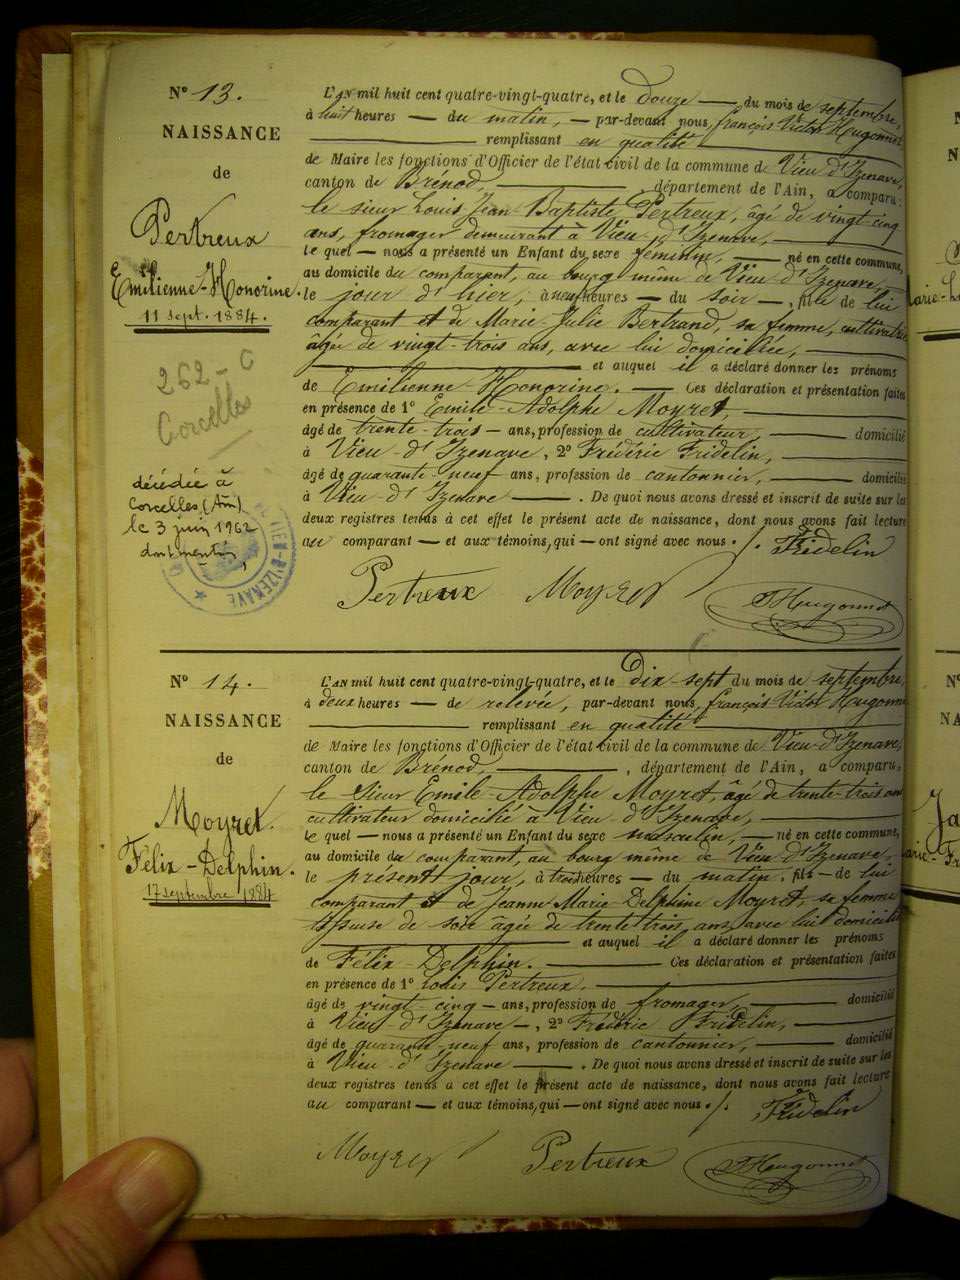 N° 13.
NAISSANCE
de
Pertreux
Emilienne-Honorine.
11 sept. 1884.
262-C
Corcelles
décédée à
Corcelles (Ain)
le 3 juin 1962
dont mention,
L'AN mil huit cent quatre-vingt-quatre, et le Douze — du mois de septembre,
à huit heures — du matin, — par-devant nous, françois Victor Hugonnet,
remplissant en qualité
de Maire les fonctions d'Officier de l'état civil de la commune de Vieu d'Izenave,
canton de Brénod, département de l'Ain, a comparu:
le sieur Louis Jean Baptiste Pertreux, âgé de vingt cinq
ans, fromager demeurant à Vieu d'Izenave,
le quel — nous a présenté un Enfant du sexe féminin, — né en cette commune,
au domicile du comparant, au bourg même de Vieu d'Izenave,
le jour d'hier, à neuf heures — du soir —, fille de lui
comparant et de Marie-Julie Bertrand, sa femme, cultivatrice
âgée de vingt-trois ans, avec lui domiciliée,
et auquel il a déclaré donner les prénoms
de Emilienne-Honorine. — Ces déclaration et présentation faites
en présence de 1° Emile-Adolphe Moyret,
âgé de trente-trois — ans, profession de cultivateur, domicilié
à Vieu-d'Izenave, 2° Frédéric Fridelin,
âgé de quarante neuf ans, profession de cantonnier, domicilié
à Vieu d'Izenave — . De quoi nous avons dressé et inscrit de suite sur les
deux registres tenus à cet effet le présent acte de naissance, dont nous avons fait lecture
au comparant — et aux témoins, qui — ont signé avec nous ./. Fridelin
Pertreux Moyret FHugonnet
N° 14.
NAISSANCE
de
Moyret.
Felix-Delphin.
17 septembre 1884
L'AN mil huit cent quatre-vingt-quatre, et le Dix-sept du mois de septembre,
à deux heures — de relevée, par-devant nous, françois Victor Hugonnet
remplissant en qualité
de Maire les fonctions d'Officier de l'état civil de la commune de Vieu-d'Izenave,
canton de Brénod, département de l'Ain, a comparu,
le Sieur Emile-Adolphe Moyret, agé de trente-trois ans
cultivateur domicilié à Vieu-d'Izenave,
le quel — nous a présenté un Enfant du sexe masculin, — né en cette commune,
au domicile du comparant, au bourg même de Vieu d'Izenave,
le présent jour, à trois heures — du matin, fils — de lui
comparant et de Jeanne-Marie Delphine Moyret, sa femme
de soie âgée de trente trois, ans, avec lui domiciliée
et auquel il a déclaré donner les prénoms
de Felix-Delphin. — Ces déclaration et présentation faites
en présence de 1° Louis Pertreux,
âgé de vingt cinq — ans, profession de fromager, domicilié
à Vieu-d'Izenave —, 2° Frédéric Fridelin,
âgé de quarante-neuf ans, profession de cantonnier, domicilié
à Vieu d'Izenave — . De quoi nous avons dressé et inscrit de suite sur les
deux registres tenus à cet effet le présent acte de naissance, dont nous avons fait lecture
au comparant — et aux témoins, qui — ont signé avec nous ./. Fridelin
Moyret Pertreux FHugonnet